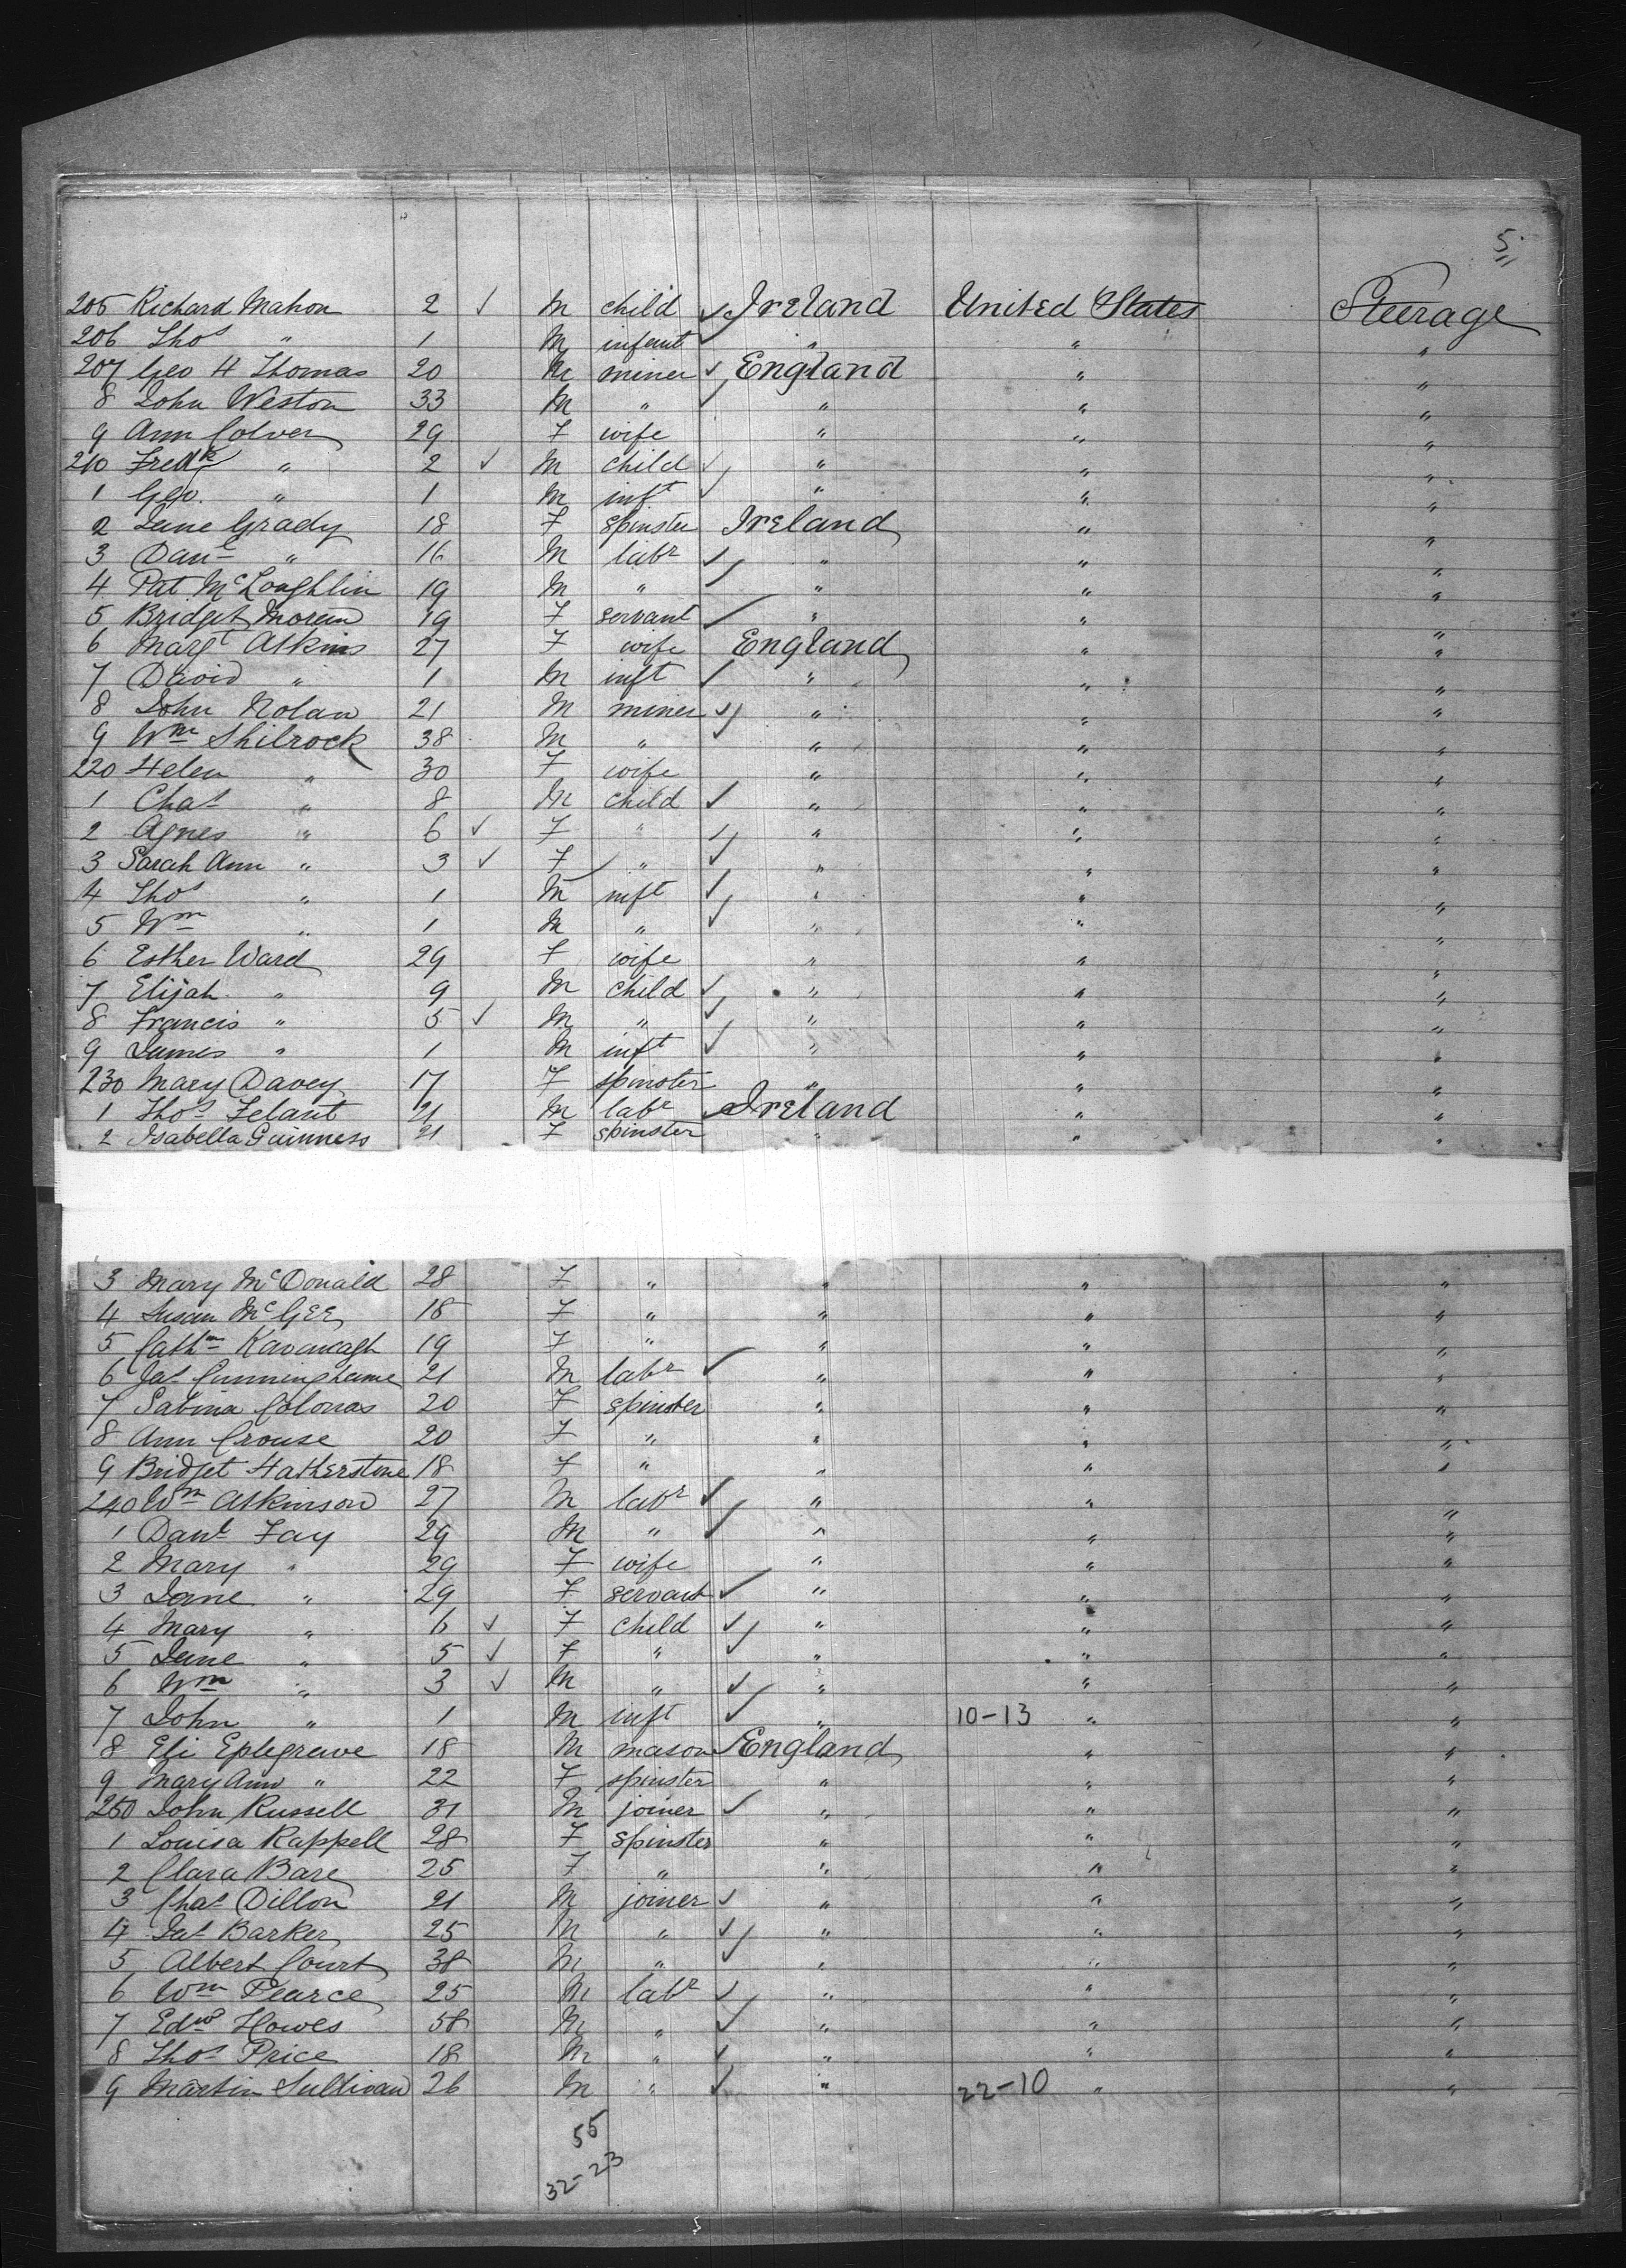 5
205 Richard Mahon 2 ✓ M child ✓ Ireland United States Steerage
206 Thos " 1 M infant ✓ " " "
207 Geo H Thomas 20 M miner ✓ England " "
8 John Weston 33 M " ✓ " " "
9 Ann Colver 29 F wife " " "
210 Fredk " 2 ✓ M child ✓ " " "
1 Geo. " 1 M inft ✓ " " "
2 Jane Grady 18 F spinster Ireland " "
3 Danl " 16 M labr ✓ " " "
4 Pat McLoughlin 19 M " ✓ " " "
5 Bridget Moran 19 F servant ✓ " " "
6 Margt Atkins 27 F wife England " "
7 David " 1 M inft ✓ " " "
8 John Nolan 21 M miner ✓ " " "
9 Wm Shilrock 38 M " ✓ " " "
220 Helen " 30 F wife " " "
1 Chas " 8 M child ✓ " " "
2 Agnes " 6 ✓ F " ✓ " " "
3 Sarah Ann " 3 ✓ F " ✓ " " "
4 Thos " 1 M inft ✓ " " "
5 Wm " 1 M " ✓ " " "
6 Esther Ward 29 F wife " " "
7 Elijah " 9 M child ✓ " " "
8 Francis " 5 ✓ M " ✓ " " "
9 James " 1 M inft ✓ " " "
230 Mary Davey 17 F spinster " " "
1 Thos Felant 21 M labr ✓ Ireland " "
2 Isabella Guinness 21 F spinster " " "
3 Mary McDonald 28 F " " " "
4 Susan McGee 18 F " " " "
5 Cathn Kavanagh 19 F " " " "
6 Jas Cunninghame 21 M labr ✓ " " "
7 Sabina Colonas 20 F spinster " " "
8 Ann Crouse 20 F " " " "
9 Bridget Hatherstone 18 F " " " "
240 Wm Atkinson 27 M labr ✓ " " "
1 Danl Fay 29 M " ✓ " " "
2 Mary " 29 F wife " " "
3 Jane " 29 F servant ✓ " " "
4 Mary " 6 ✓ F child ✓ " " "
5 Jane " 5 ✓ F " ✓ " " "
6 Wm " 3 ✓ M " ✓ " " "
7 John " 1 M inft ✓ " 10-13 " "
8 Eli Eplegrave 18 M mason ✓ England " "
9 Mary Ann " 22 F spinster " " "
250 John Russell 31 M joiner ✓ " " "
1 Louisa Rappell 28 F spinster " " "
2 Clara Bare 25 F " " " "
3 Chas Dillon 21 M joiner ✓ " " "
4 Jas Barker 25 M " ✓ " " "
5 Albert Court 38 M " ✓ " " "
6 Wm Pearce 25 M labr ✓ " " "
7 Edwd Howes 58 M " ✓ " " "
8 Thos Price 18 M " ✓ " " "
9 Martin Sullivan 26 M " ✓ " 22-10 " "
55
32-23
5